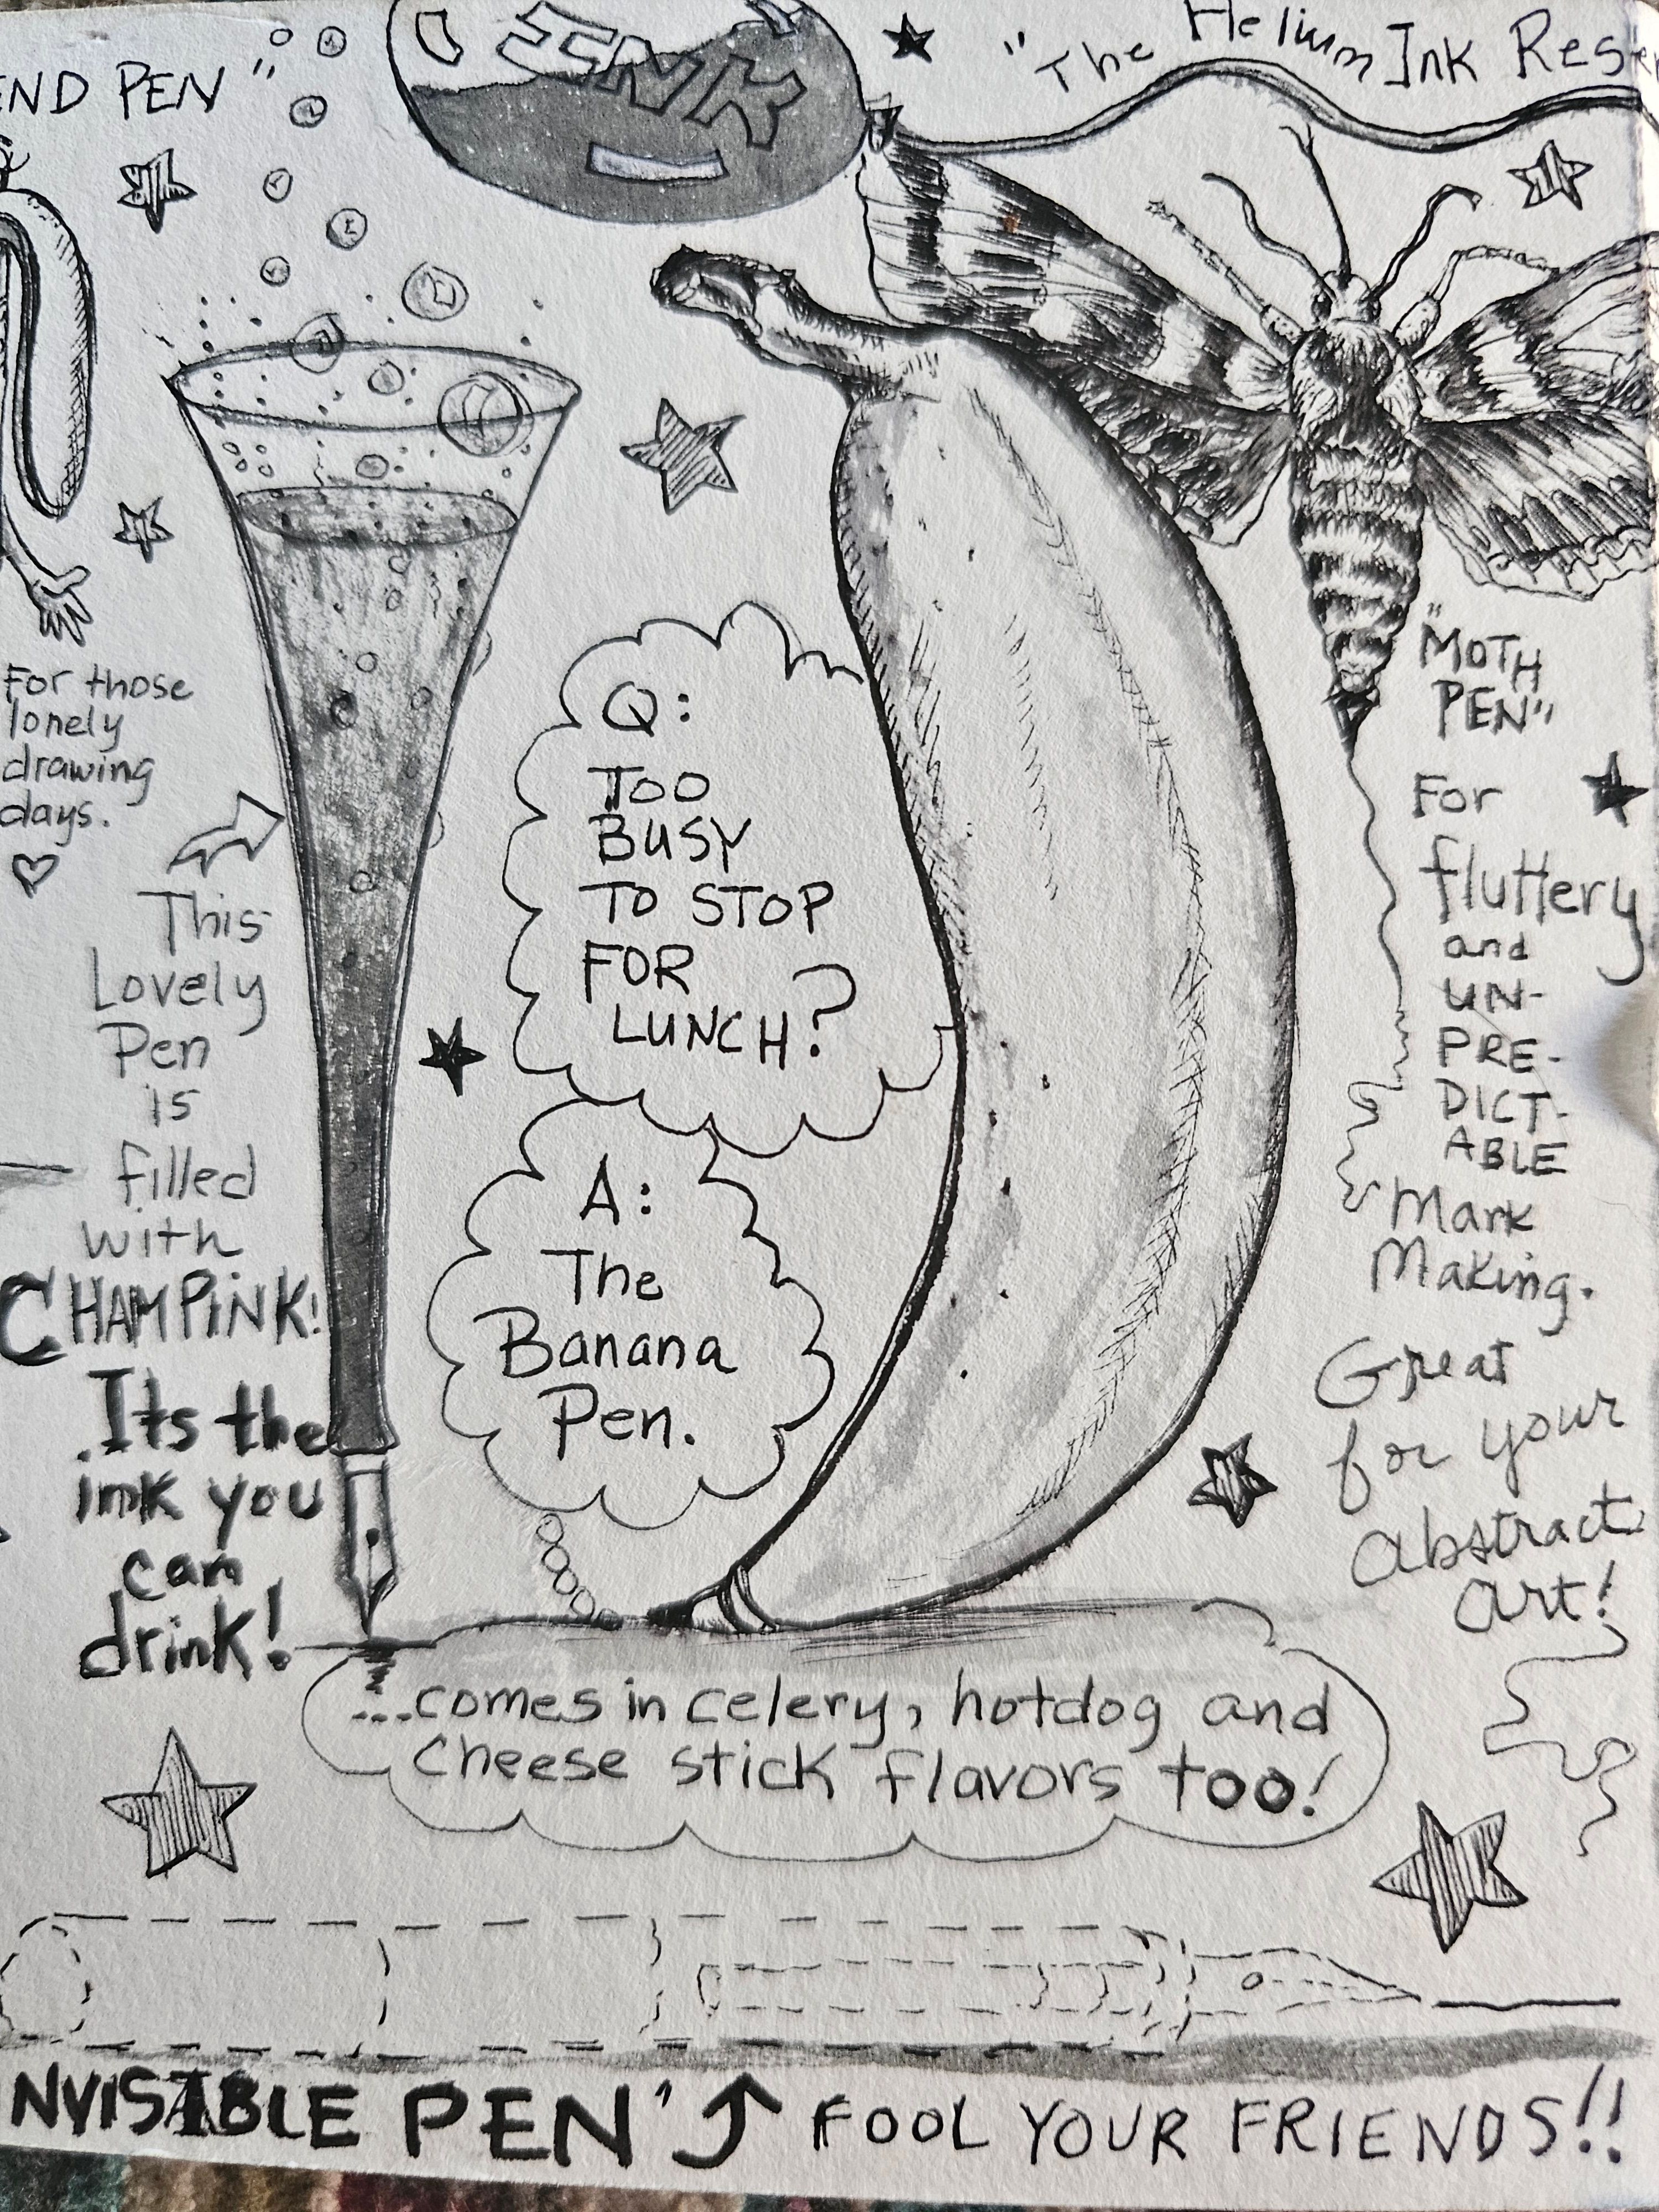 INK
"The Helium Ink
PEN"
For those
lonely
drawing
days.
This
Lovely
Pen
is
filled
with
CHAMPINK!
Its the
ink you
can
drink!
Q:
TOO
BUSY
TO STOP
FOR
LUNCH?
A:
The
Banana
Pen.
...comes in celery, hotdog and
Cheese stick flavors too!
"MOTH
PEN"
For
fluttery
and
UN-
PRE-
DICT-
ABLE
Mark
Making.
Great
for your
abstract
art!
NVISABLE PEN" FOOL YOUR FRIENDS!!